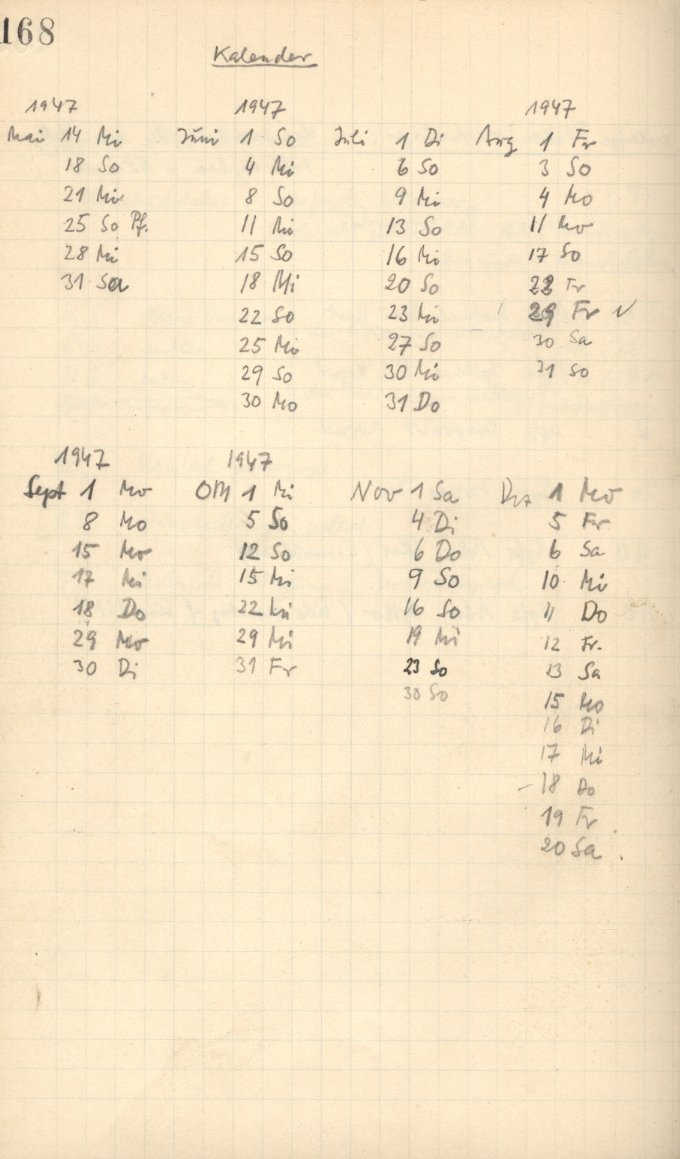 168
Kalender
1947 1947 1947
Mai 14 Mi Juni 1 So Juli 1 Di Aug 1 Fr
18 So 4 Mi 6 So 3 So
21 Mi 8 So 9 Mi 4 Mo
25 So Pf. 11 Mi 13 So 11 Mo
28 Mi 15 So 16 Mi 17 So
31 Sa 18 Mi 20 So 22 Fr
22 So 23 Mi 29 Fr ✓
25 Mi 27 So 30 Sa
29 So 30 Mi 31 So
30 Mo 31 Do
1947 1947
Sept 1 Mo Okt 1 Mi Nov 1 Sa Dez 1 Mo
8 Mo 5 So 4 Di 5 Fr
15 Mo 12 So 6 Do 6 Sa
17 Mi 15 Mi 9 So 10 Mi
18 Do 22 Mi 16 So 11 Do
29 Mo 29 Mi 19 Mi 12 Fr.
30 Di 31 Fr 23 So 13 Sa
30 So 15 Mo
16 Di
17 Mi
– 18 Do
19 Fr
20 Sa.